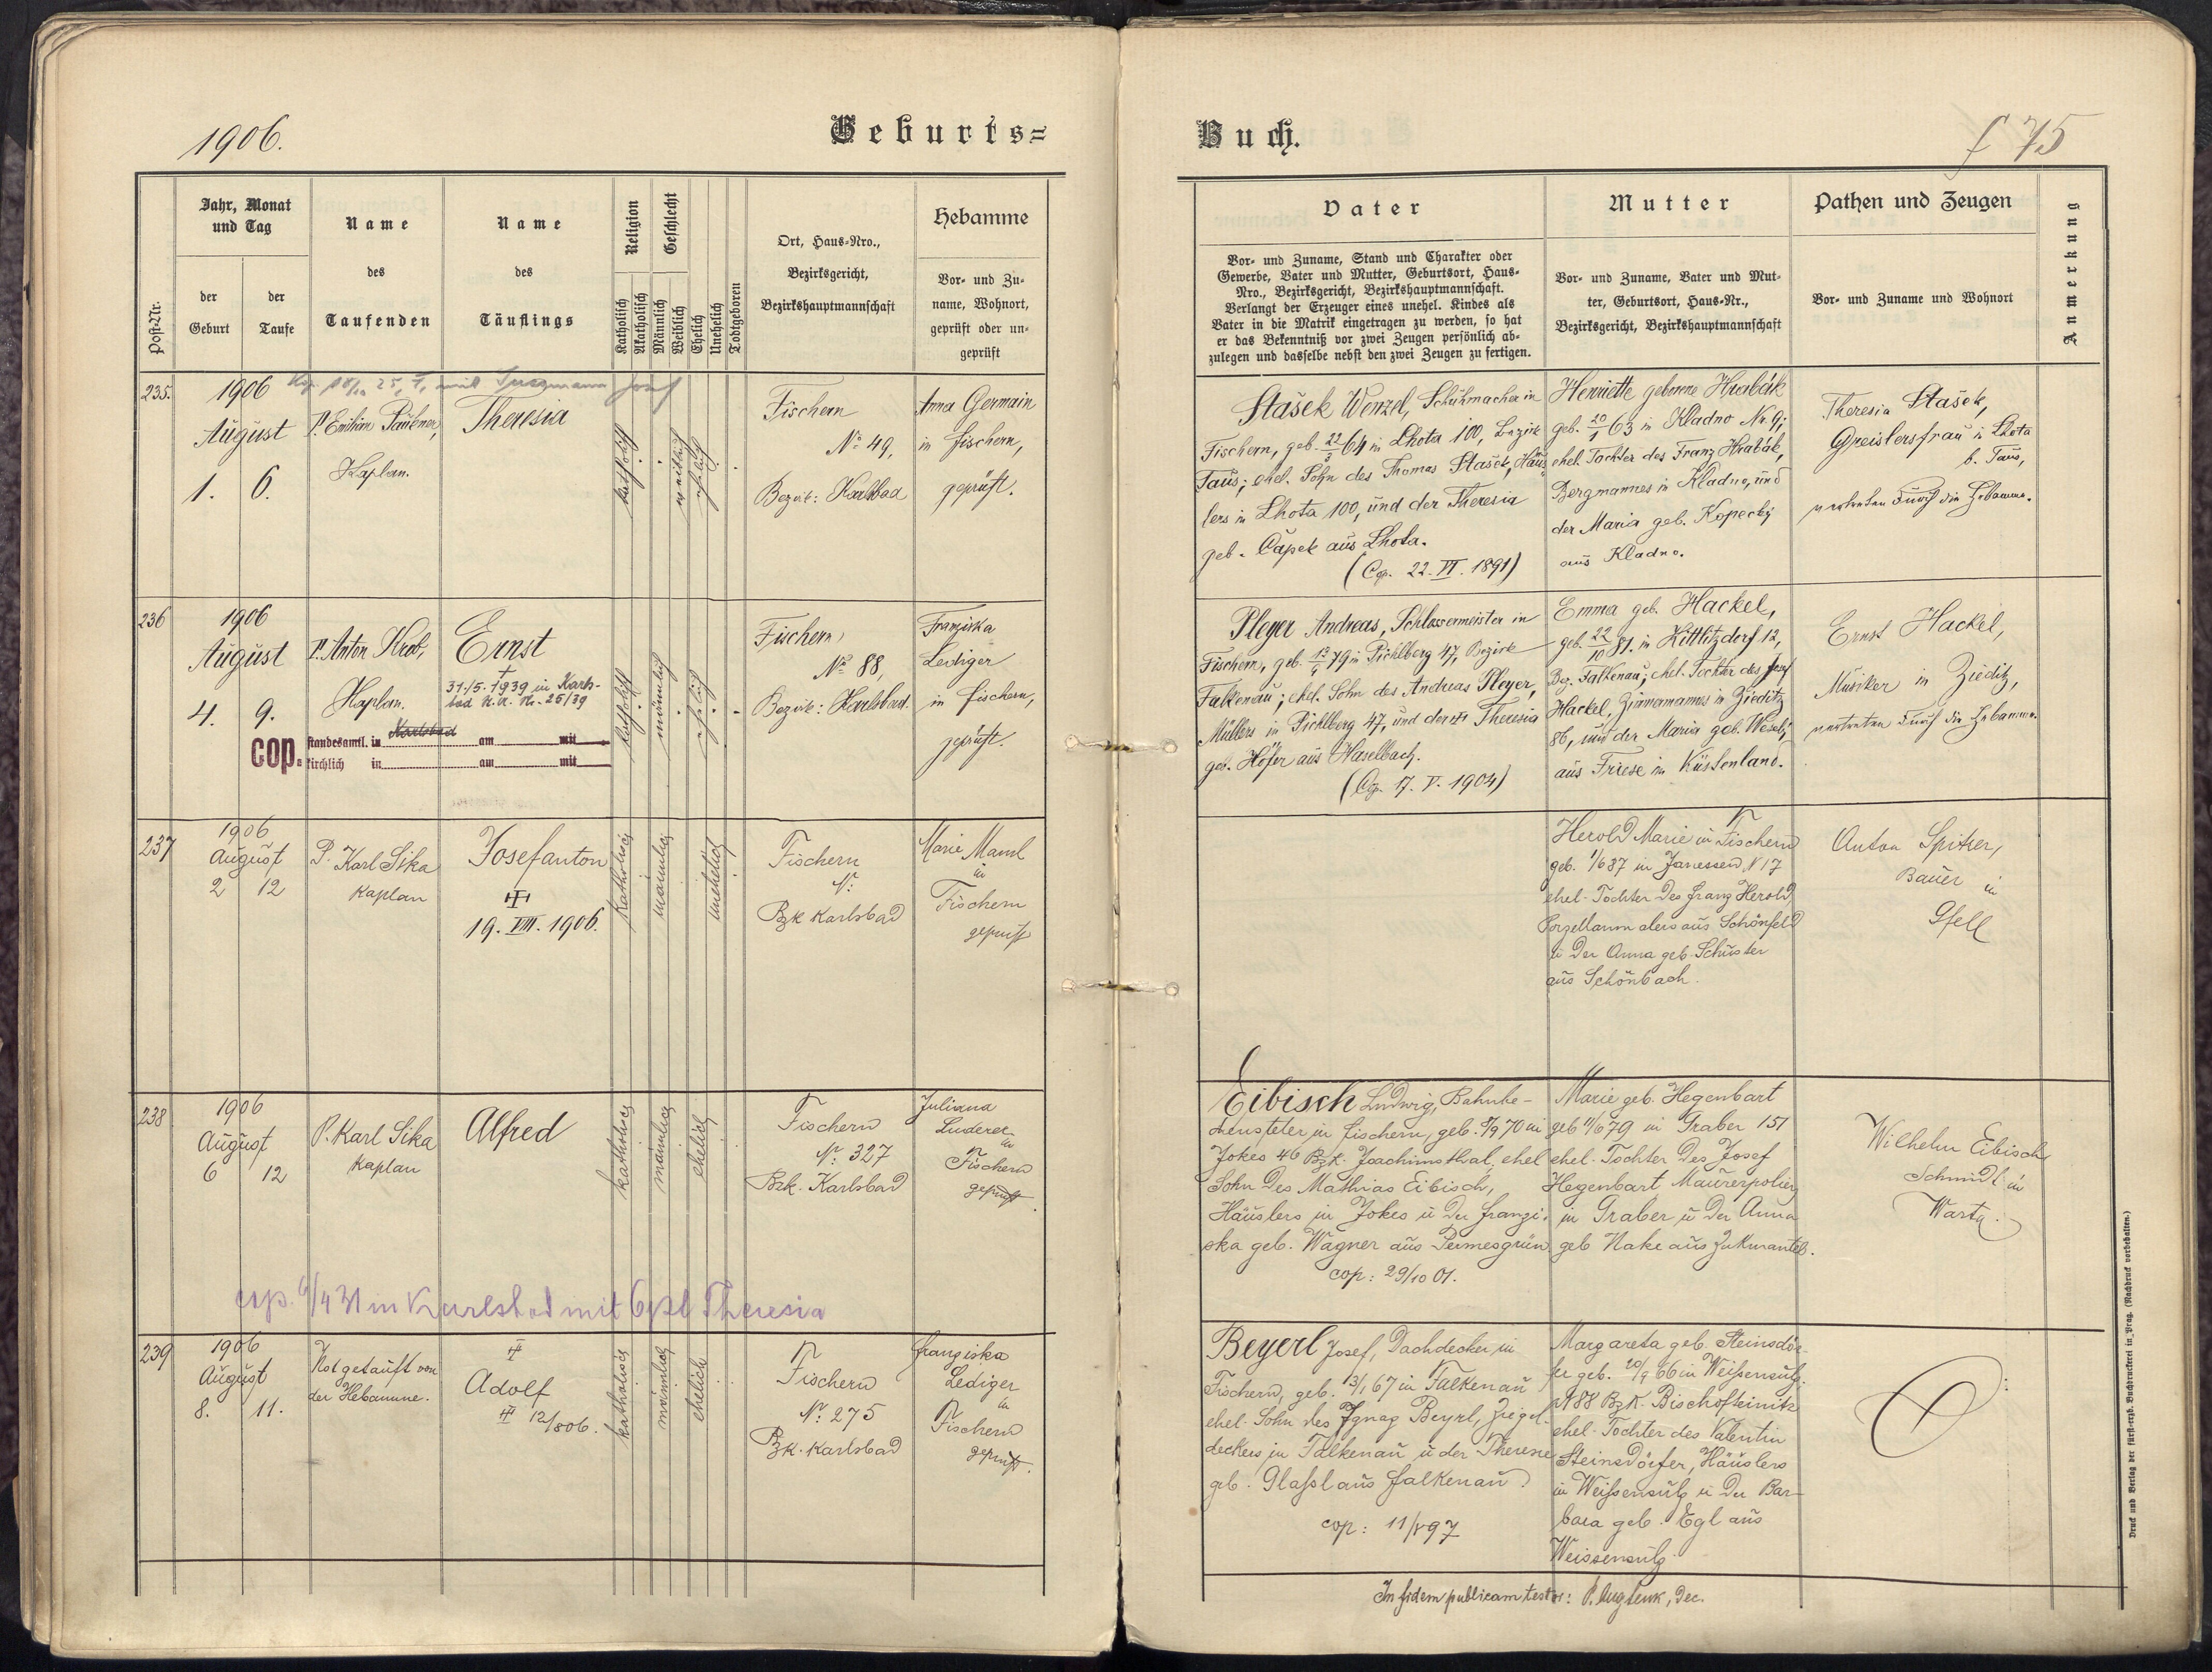 1906.
Geburts=
Buch.
f 75
Post-Nr.
Jahr, Monat
und Tag
der
Geburt
der
Taufe
Name
des
Taufenden
Name
des
Täuflings
Religion
Katholisch
Akatholisch
Geschlecht
Männlich
Weiblich
Ehelich
Unehelich
Todtgeboren
Ort, Haus-Nro.,
Bezirksgericht,
Bezirkshauptmannschaft
Hebamme
Vor- und Zu-
name, Wohnort,
geprüft oder un-
geprüft
Vater
Vor- und Zuname, Stand und Charakter oder
Gewerbe, Vater und Mutter, Geburtsort, Haus-
Nro., Bezirksgericht, Bezirkshauptmannschaft.
Verlangt der Erzeuger eines unehel. Kindes als
Vater in die Matrik eingetragen zu werden, so hat
er das Bekenntniß vor zwei Zeugen persönlich ab-
zulegen und dasselbe nebst den zwei Zeugen zu fertigen.
Mutter
Vor- und Zuname, Vater und Mut-
ter, Geburtsort, Haus-Nr.,
Bezirksgericht, Bezirkshauptmannschaft
Pathen und Zeugen
Vor- und Zuname und Wohnort
Anmerkung
235.
1906
August
1. 6.
Kaplan.
Theresia
katholisch
weiblich
ehelich
Fischern
No 49,
Bezirk: Karlsbad
Anna Germain
in Fischern,
geprüft.
Stašek Wenzel, Schuhmacher in
Fischern, geb. 64 in Lhota 100, Bezirk
Taus; ehel. Sohn des Thomas Stašek, Häus-
lers in Lhota 100, und der Theresia
geb. Čapek aus Lhota.
(Cop. 22. VI. 1891)
Henriette geborene Hrabák
geb. 20/1 63 in Kladno Nr. 9;
ehel. Tochter des Franz Hrabák,
Bergmannes in Kladno, und
der Maria geb. Kopecký
aus Kladno.
Theresia Stašek,
Greislersfrau in Lhota
b. Taus,
vertreten durch die Hebamme.
236
1906
August
4. 9.
P. Anton Krob,
Kaplan.
Ernst
31./5. 1939 in Karls-
bad
cop.
standesamtl. in Karlsbad am mit
kirchlich in am mit
katholisch
männlich
ehelich
Fischern,
No 88,
Bezirk: Karlsbad.
Franziska
Lediger
in Fischern,
geprüft.
Pleyer Andreas, Schlossermeister in
Fischern, geb. 79 in Pichlberg 47, Bezirk
Falkenau; ehel. Sohn des Andreas Pleyer,
Müllers in Pichlberg 47, und der Theresia
geb. Höfer aus Haselbach.
(Cop. 17. V. 1904)
Emma geb. Hackel,
geb. 22/10 81. in Kittlitzdorf 12,
Bez. Falkenau; ehel. Tochter des Josef
Hackel, Zimmermannes in Zieditz
86, und der Maria geb.
aus Triese in Küstenland.
Ernst Hackel,
Musiker in Zieditz,
vertreten durch die Hebamme.
237
1906
August
2 12
P. Karl Sika
Kaplan
Josefanton
19. VIII. 1906.
katholisch
männlich
unehelich
Fischern
No:
Bzk Karlsbad
Marie
in
Fischern
geprüft
Herold Marie in Fischern
geb. 1/6 87 in Janessen N 17
ehel. Tochter des Franz Herold,
Porzellanmalers aus Schönfeld
u der Anna geb. Schuster
aus Schönbach.
Anton Spitzer,
Bauer in
Gfell
238
1906
August
6 12
P. Karl Sika
Kaplan
Alfred
katholisch
männlich
ehelich
Fischern
No: 327
Bzk. Karlsbad
Juliana
Luderer
in
Fischern
geprüft.
Eibisch Ludwig, Bahnbe-
diensteter in Fischern, geb. 70 in
Jokes 46 Bzk. Joachimsthal, ehel
Sohn des Mathias Eibisch,
Häuslers in Jokes u der Franzi-
ska geb. Wagner aus Permesgrün
cop: 29/10 01.
Marie geb. Hegenbart
geb 11/6 79 in Graber 151
ehel. Tochter des Josef
Hegenbart Maurerpolier
in Graber u der Anna
geb Hake aus Zukmantel.
Wilhelm Eibisch
Schmidt in
Warta.
cop. 6/4 31 in Karlsbad mit Theresia
239
1906
August
8. 11.
Notgetauft von
der Hebamme.
Adolf
12/8 06.
katholisch
männlich
ehelich
Fischern
No: 275
Bzk. Karlsbad
Franziska
Lediger
in
Fischern
geprüft.
Beyerl Josef, Dachdecker in
Fischern, geb. 13/1 67 in Falkenau
ehel. Sohn des Ignaz Beyrl, Ziegel-
deckers in Falkenau u der Therese
geb. Glaßl aus Falkenau
cop: 11/5 97
Margareta geb. Steinsdör-
fer geb. 20/9 66 in Weißensulz
N 88 Bzk. Bischofteinitz
ehel. Tochter des Valentin
Steinsdörfer, Häuslers
in Weißensulz u der Bar-
bara geb. Egl aus
Weissensulz.
In fidem publicam testor:
Druck und Verlag der fürst-erzb. Buchdruckerei in Prag. (Nachdruck vorbehalten.)